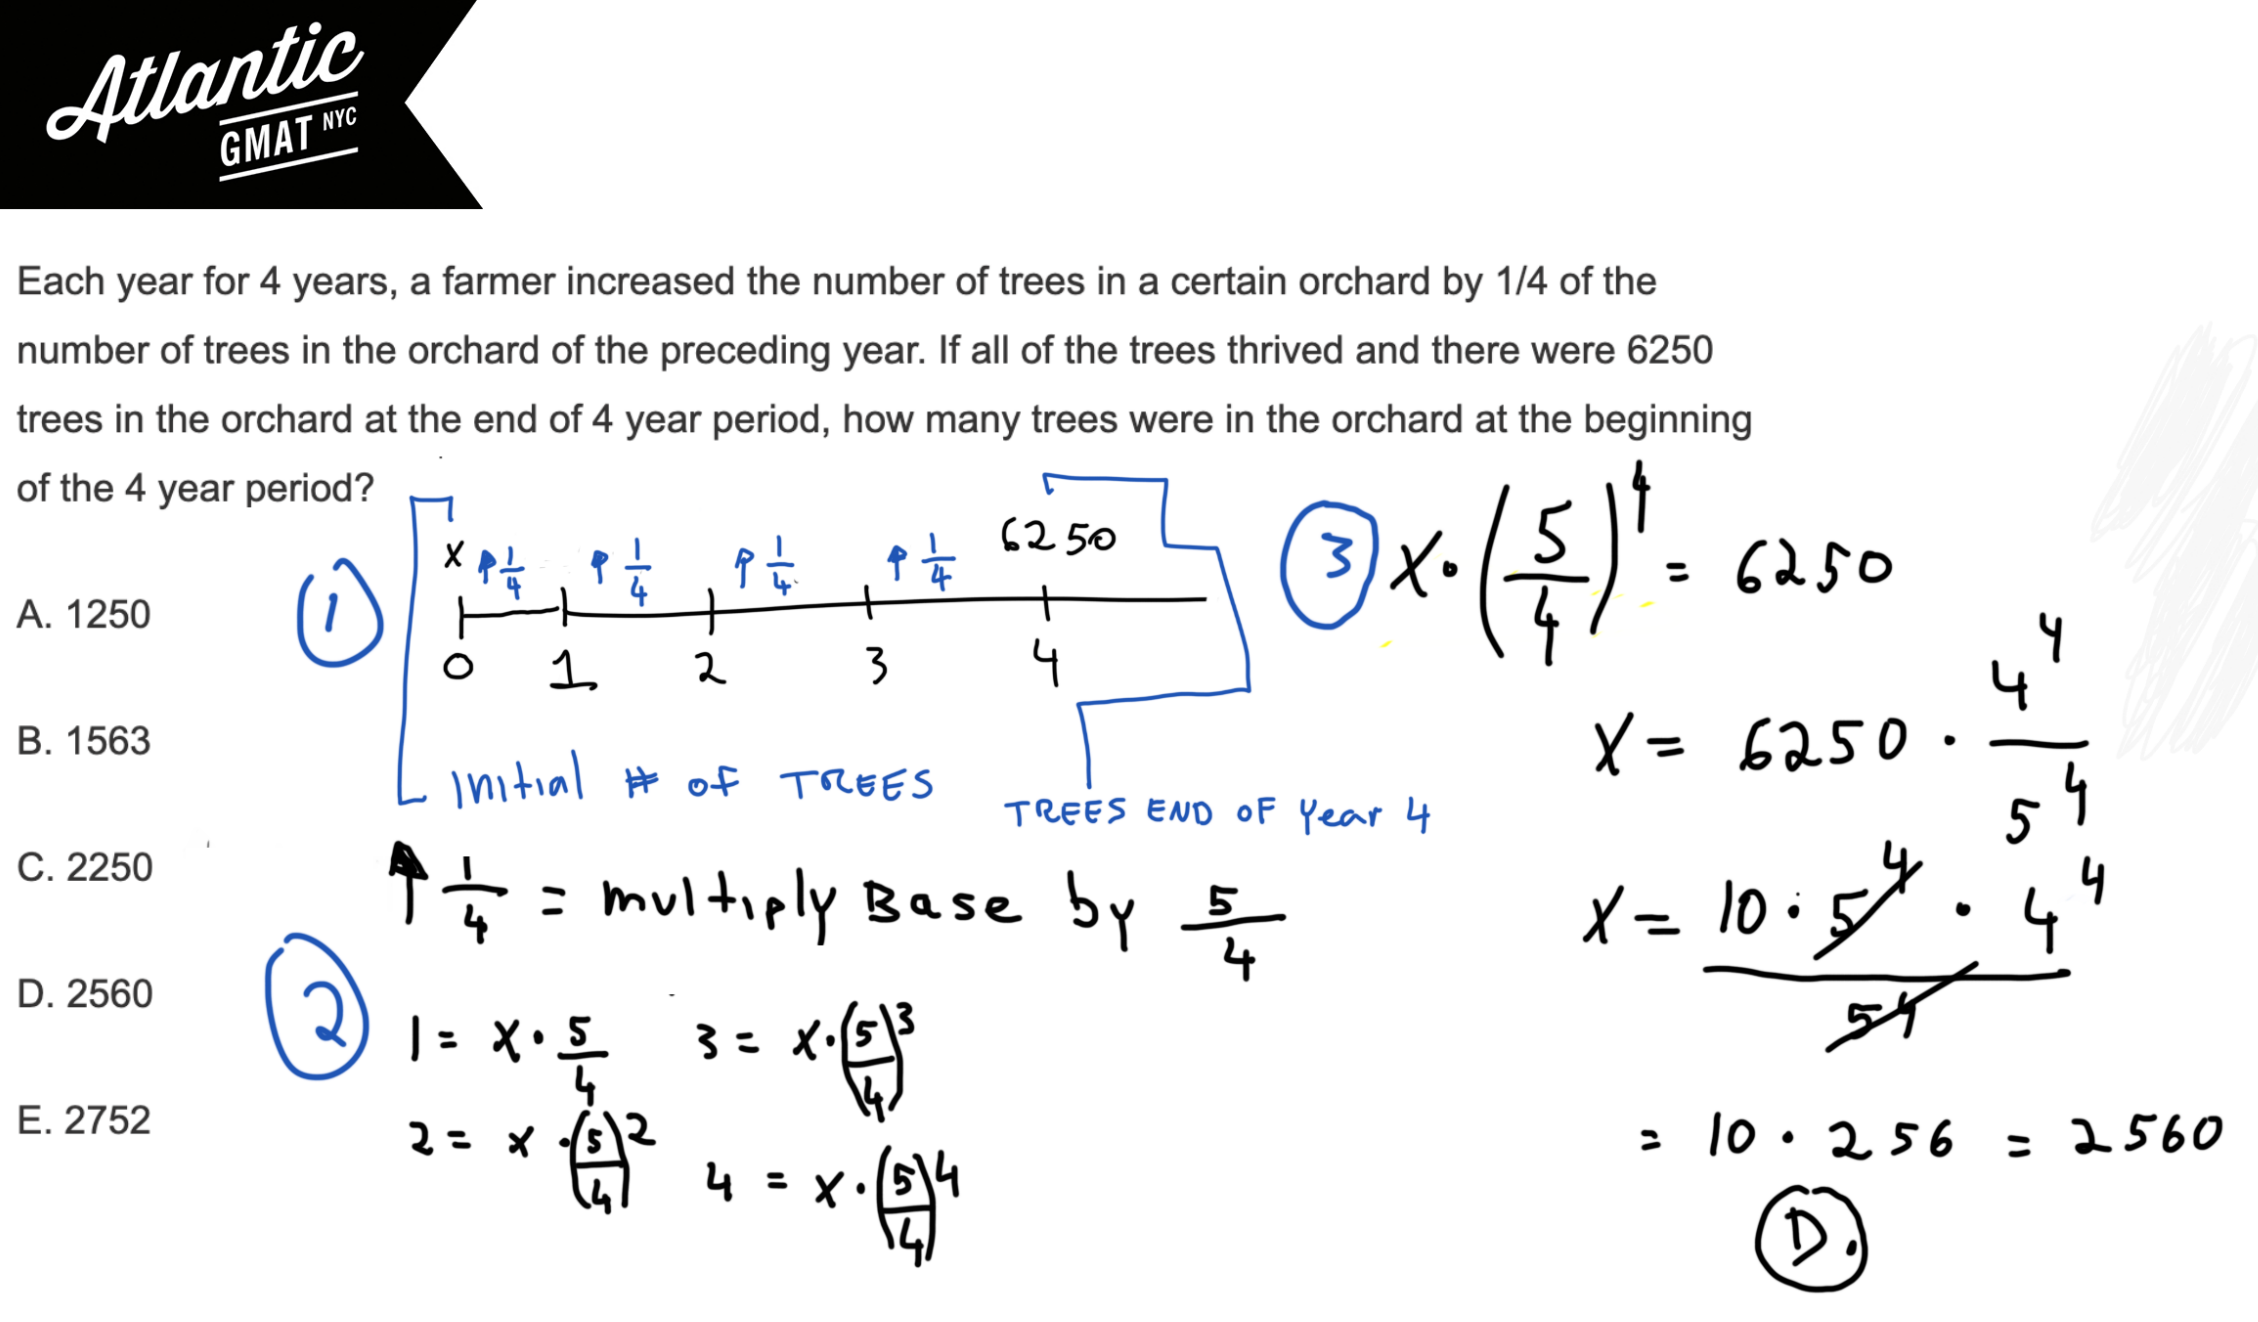 Atlantic
GMAT NYC
Each year for 4 years, a farmer increased the number of trees in a certain orchard by 1/4 of the
number of trees in the orchard of the preceding year. If all of the trees thrived and there were 6250
trees in the orchard at the end of 4 year period, how many trees were in the orchard at the beginning
of the 4 year period?
A. 1250
B. 1563
C. 2250
D. 2560
E. 2752
1
x ↑1/4 ↑1/4 ↑1/4 ↑1/4 6250
0 1 2 3 4
Initial # of TREES
TREES END OF Year 4
↑ 1/4 = multiply Base by 5/4
2
1 = x · 5/4
2 = x · (5/4)^2
3 = x · (5/4)^3
4 = x · (5/4)^4
3
x · (5/4)^4 = 6250
x = 6250 · 4^4/5^4
x = 10 · 5^4 · 4^4 / 5^4
= 10 · 256 = 2560
D.